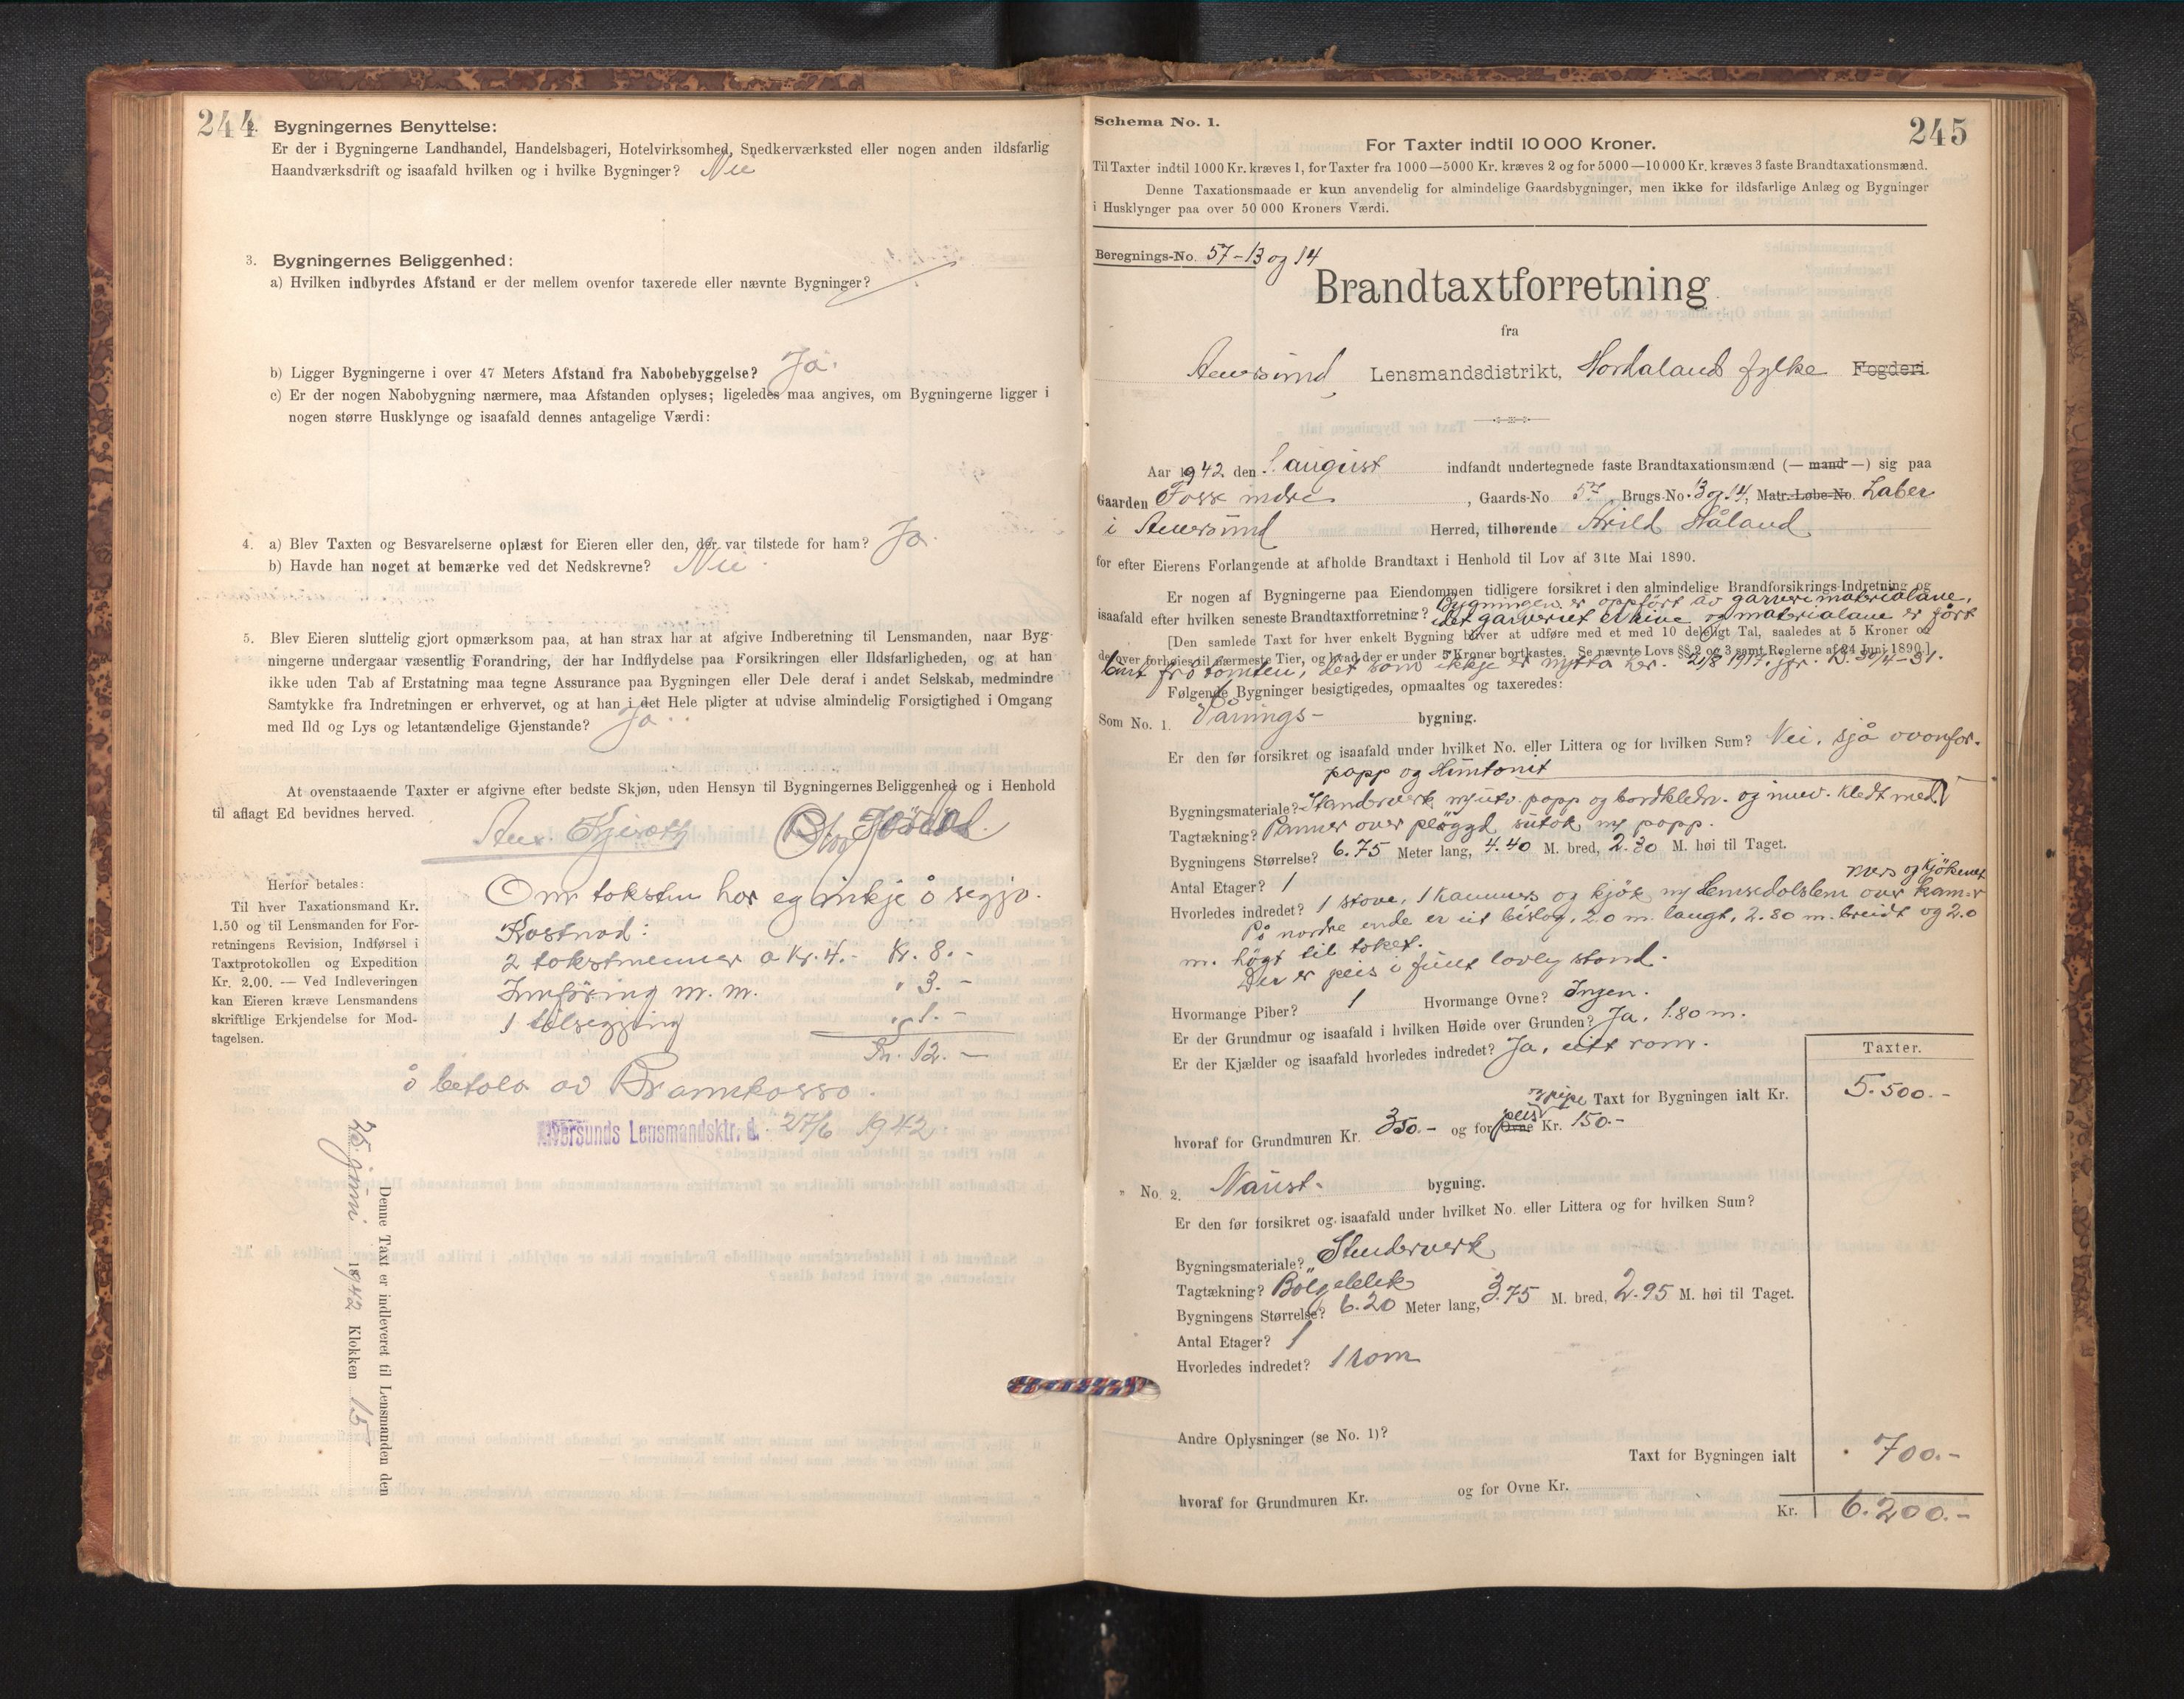 244
2. Bygningernes Benyttelse:
Er der i Bygningerne Landhandel, Handelsbageri, Hotelvirksomhed, Snedkerværksted eller nogen anden ildsfarlig
Haandværksdrift og isaafald hvilken og i hvilke Bygninger? Nei
3. Bygningernes Beliggenhed:
a) Hvilken indbyrdes Afstand er der mellem ovenfor taxerede eller nævnte Bygninger?
b) Ligger Bygningerne i over 47 Meters Afstand fra Nabobebyggelse? Ja.
c) Er der nogen Nabobygning nærmere, maa Afstanden oplyses; ligeledes maa angives, om Bygningerne ligger i
nogen større Husklynge og isaafald dennes antagelige Værdi:
4. a) Blev Taxten og Besvarelserne oplæst for Eieren eller den, der var tilstede for ham? Ja.
b) Havde han noget at bemærke ved det Nedskrevne? Nei.
5. Blev Eieren sluttelig gjort opmærksom paa, at han strax har at afgive Indberetning til Lensmanden, naar Byg-
ningerne undergaar væsentlig Forandring, der har Indflydelse paa Forsikringen eller Ildsfarligheden, og at han
ikke uden Tab af Erstatning maa tegne Assurance paa Bygningen eller Dele deraf i andet Selskab, medmindre
Samtykke fra Indretningen er erhvervet, og at han i det Hele pligter at udvise almindelig Forsigtighed i Omgang
med Ild og Lys og letantændelige Gjenstande? Ja.
At ovenstaaende Taxter er afgivne efter bedste Skjøn, uden Hensyn til Bygningernes Beliggenhed og i Henhold
til aflagt Ed bevidnes herved.
Herfor betales:
Til hver Taxationsmand Kr.
1.50 og til Lensmanden for For-
retningens Revision, Indførsel i
Taxtprotokollen og Expedition
Kr. 2.00. — Ved Indleveringen
kan Eieren kræve Lensmandens
skriftlige Erkjendelse for Mod-
tagelsen.
Om taksten har eg inkje å segja.
Kostnad:
2 takstmenner a Kr. 4.- Kr. 8.-
Innføring m. m. " 3.-
1 tilsegjing " 1.-
Kr. 12.-
å betala av Brannkassa.
Alversunds Lensmandsktr. d. 27/6 1942
Denne Taxt er indleveret til Lensmanden den
25 juni 1942 Klokken 15
245
Schema No. 1.
For Taxter indtil 10 000 Kroner.
Til Taxter indtil 1000 Kr. kræves 1, for Taxter fra 1000—5000 Kr. kræves 2 og for 5000—10 000 Kr. kræves 3 faste Brandtaxationsmænd.
Denne Taxationsmaade er kun anvendelig for almindelige Gaardsbygninger, men ikke for ildsfarlige Anlæg og Bygninger
i Husklynger paa over 50 000 Kroners Værdi.
Beregnings-No. 57-13 og 14
Brandtaxtforretning
fra
Alversund Lensmandsdistrikt, Hordaland fylke Fogderi.
Aar 1942 den august indfandt undertegnede faste Brandtaxationsmænd (— mand —) sig paa
Gaarden Foss indre, Gaards-No 57, Brugs-No. 13 og 14, Matr.-Løbe-No.
i Alversund Herred, tilhørende Arild Håland
for efter Eierens Forlangende at afholde Brandtaxt i Henhold til Lov af 31te Mai 1890.
Er nogen af Bygningerne paa Eiendommen tidligere forsikret i den almindelige Brandforsikrings-Indretning og
isaafald efter hvilken seneste Brandtaxtforretning? Bygningen er oppført av garverimaterialane,
det garveriet er rive og materialane er ført
[Den samlede Taxt for hver enkelt Bygning bliver at udføre med et med 10 deleligt Tal, saaledes at 5 Kroner og
derover forhøies til nærmeste Tier, og hvad der er under 5 Kroner bortkastes. Se nævnte Lovs §§ 2 og 3 samt Reglerne af 24 Juni 1890.]
burt frå tomten, det som ikkje er nytta her. 21/8 1917. jfr. B. 30/4-31.
Følgende Bygninger besigtigedes, opmaaltes og taxeredes:
Som No. 1. Vånings- bygning.
Er den før forsikret og isaafald under hvilket No. eller Littera og for hvilken Sum? Nei, sjå ovanfor.
papp og Huntonit
Bygningsmateriale? Standerverk m/utv. papp og bordkledn. og innv. kledt med
Tagtækning? Panner over pløggd sutak m/ papp.
Bygningens Størrelse? 6.75 Meter lang, 4.40 M. bred, 2.30 M. høi til Taget.
Antal Etager? 1
mers og kjøkenet
Hvorledes indredet? 1 stove, 1 kammers og kjøk m/ Hemsedalslem over kam-
På nordre ende er eit bislag, 2.0 m. langt, 2.80 m. breidt og 2.0
m. høgt til taket.
Der er peis i fullt lovleg stand.
Hvormange Piber? 1 Hvormange Ovne? Ingen.
Er der Grundmur og isaafald i hvilken Høide over Grunden? Ja, 1.80 m.
Er der Kjælder og isaafald hvorledes indredet? Ja, eitt rom.
Taxter.
m/pipe Taxt for Bygningen ialt Kr. 5.500.-
hvoraf for Grundmuren Kr. 350.- og for Ovne peis Kr. 150.-
" No. 2. Naust- bygning.
Er den før forsikret og isaafald under hvilket No. eller Littera og for hvilken Sum?
Bygningsmateriale? Stenderverk
Tagtækning? Bølgeblek
Bygningens Størrelse? 6.20 Meter lang, 3.75 M. bred, 2.95 M. høi til Taget.
Antal Etager? 1
Hvorledes indredet? 1 rom
Andre Oplysninger (se No. 1)?
Taxt for Bygningen ialt 700.-
hvoraf for Grundmuren Kr. og for Ovne Kr.
Kr. 6.200.-